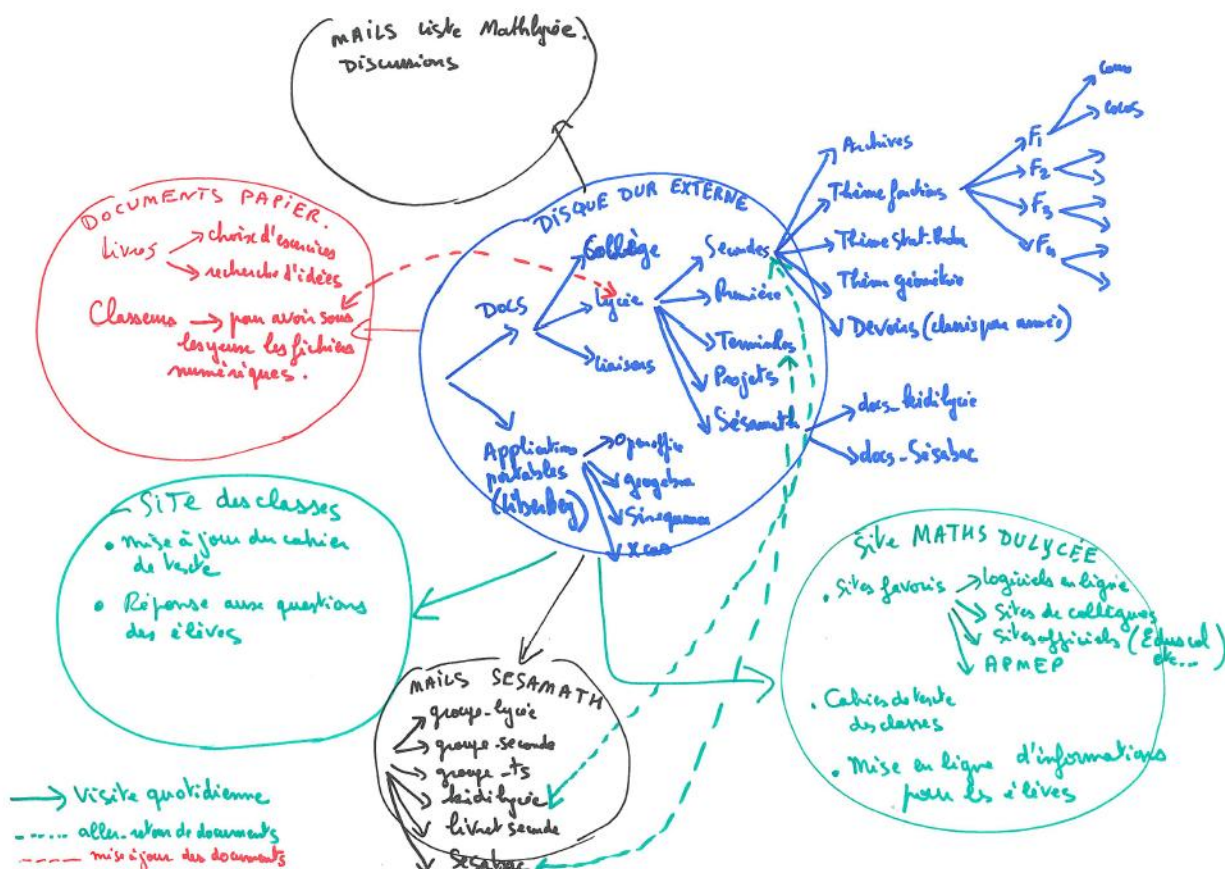 MAILS liste Mathlycée.
Discussions
DOCUMENTS PAPIER.
Livres
choix d'exercices
recherche d'idées
Classeurs
pour avoir sous
les yeux les fichiers
numériques.
DISQUE DUR EXTERNE
DOCS
Collège
Lycée
liaisons
Secondes
Première
Terminales
Projets
Sésamath
Archives
Thème fonctions
Thème Stat-Proba
Thème géométrie
Devoirs (classés par année)
F1
F2
F3
F4
Cours
docs_kidilycée
docs_Sésabac
Applications
portables
Openoffice
geogebra
Sinequanon
Xcas
SITE des classes
• Mise à jour du cahier
de texte
• Réponse aux questions
des élèves
MAILS SESAMATH
groupe-lycée
groupe-seconde
groupe-ts
kidilycée
livret seconde
Sesabac
Site MATHS DU LYCÉE
• Sites favoris
logiciels en ligne
Sites de collègues
Sites officiels (Eduscol
etc...
APMEP
• Cahiers de texte
des classes
• Mise en ligne d'informations
pour les élèves
Visite quotidienne
aller-retour de documents
mise à jour des documents